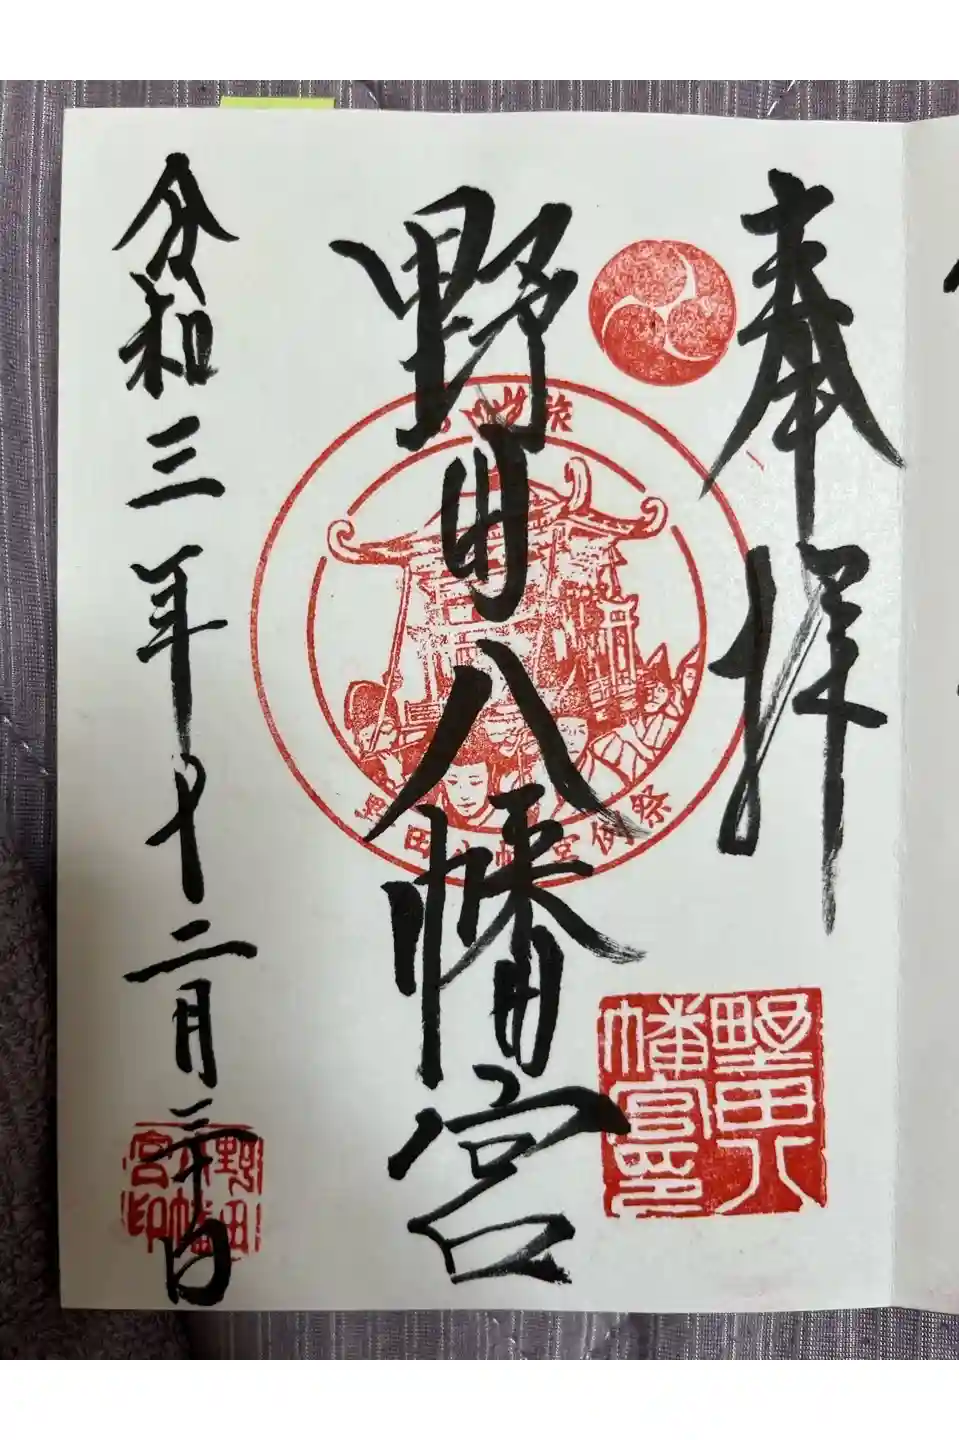 奉拝
野田八幡宮
令和三年十二月二十日
野田八幡宮例祭
野田八
幡宮印
野田
八幡
宮印